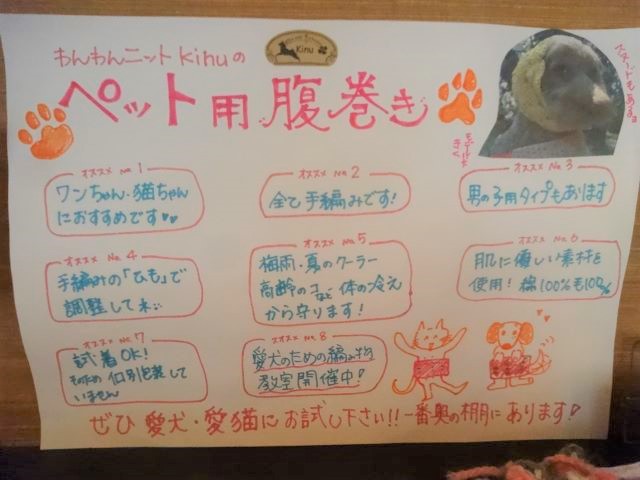 わんわんニット kinuの
Kinu
ペット用腹巻き
スヌードもあるヨ
モデルは
きく
オススメ No.1
ワンちゃん・猫ちゃん
におすすめです♥♥
オススメ No.2
全て手編みです!
オススメ No.3
男の子用タイプもあります
オススメ No.4
手編みの「ひも」で
調整してネ
オススメ No.5
梅雨・夏のクーラー
高齢のコなど体の冷え
から守ります!
オススメ No.6
肌に優しい素材を
使用! 綿100%も100%
オススメ No.7
試着OK!
そのため個別包装して
いません
オススメ No.8
愛犬のための編み物
教室開催中!
ぜひ愛犬・愛猫にお試し下さい!! 一番奥の棚にあります!